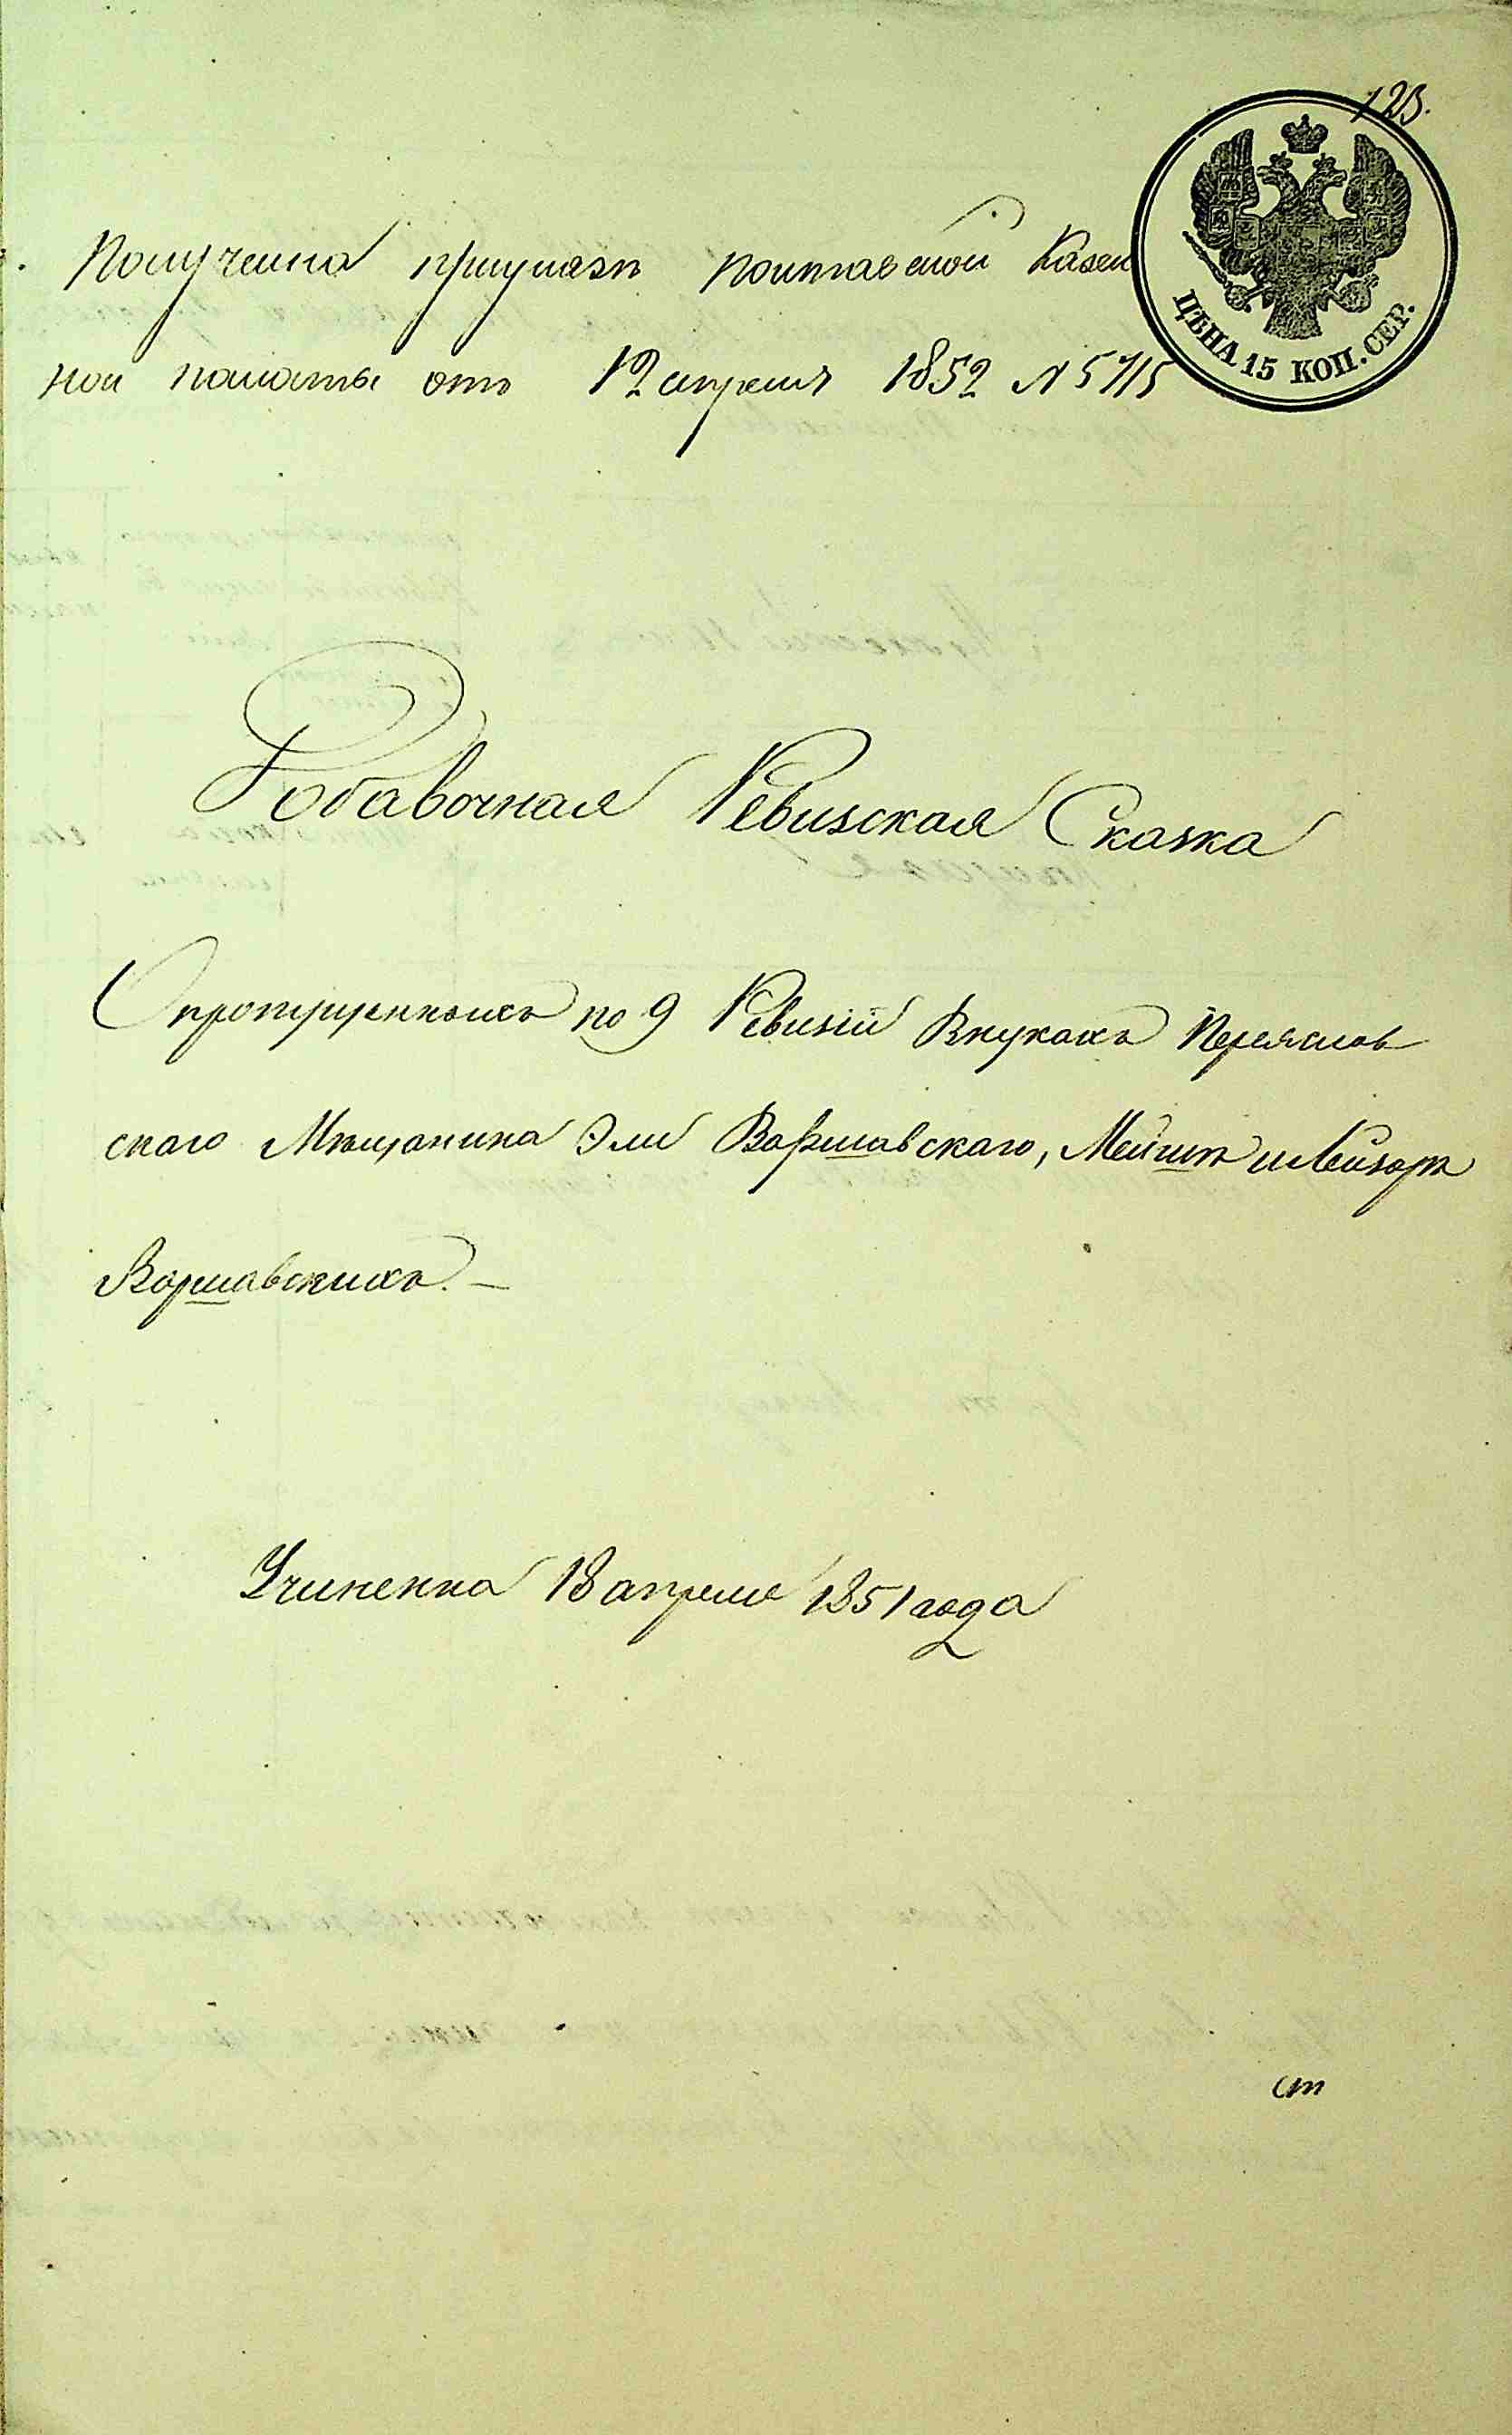 123.
Получена приуказѣ Полтавской Казен
ной палаты отъ 12 апреля 1852 N 5715
ЦѢНА 15 КОП. СЕР.
Добавочная Ревизская Сказка
О пропущенныхъ по 9 Ревизіи Внукахъ Переяслов
скаго Мѣщанина Эли Варшавскаго, Мейшѣ и Лейзорѣ
Варшавскихъ. —
Учиненна 18 апреля 1851 года
ст